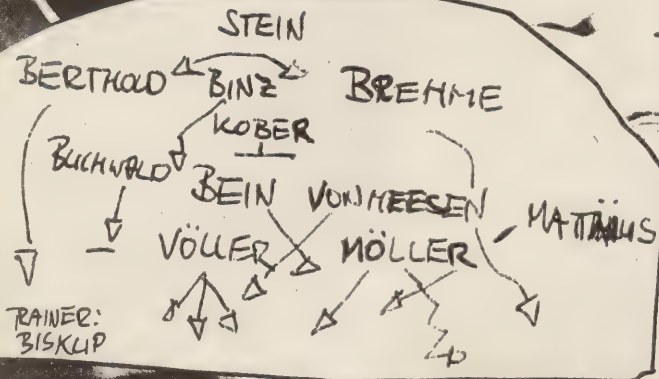 STEIN
BERTHOLD BINZ BREHME
KOBER
BUCHWALD BEIN VON HEESEN MATTHÄUS
VÖLLER MÖLLER
TRAINER:
BISKUP